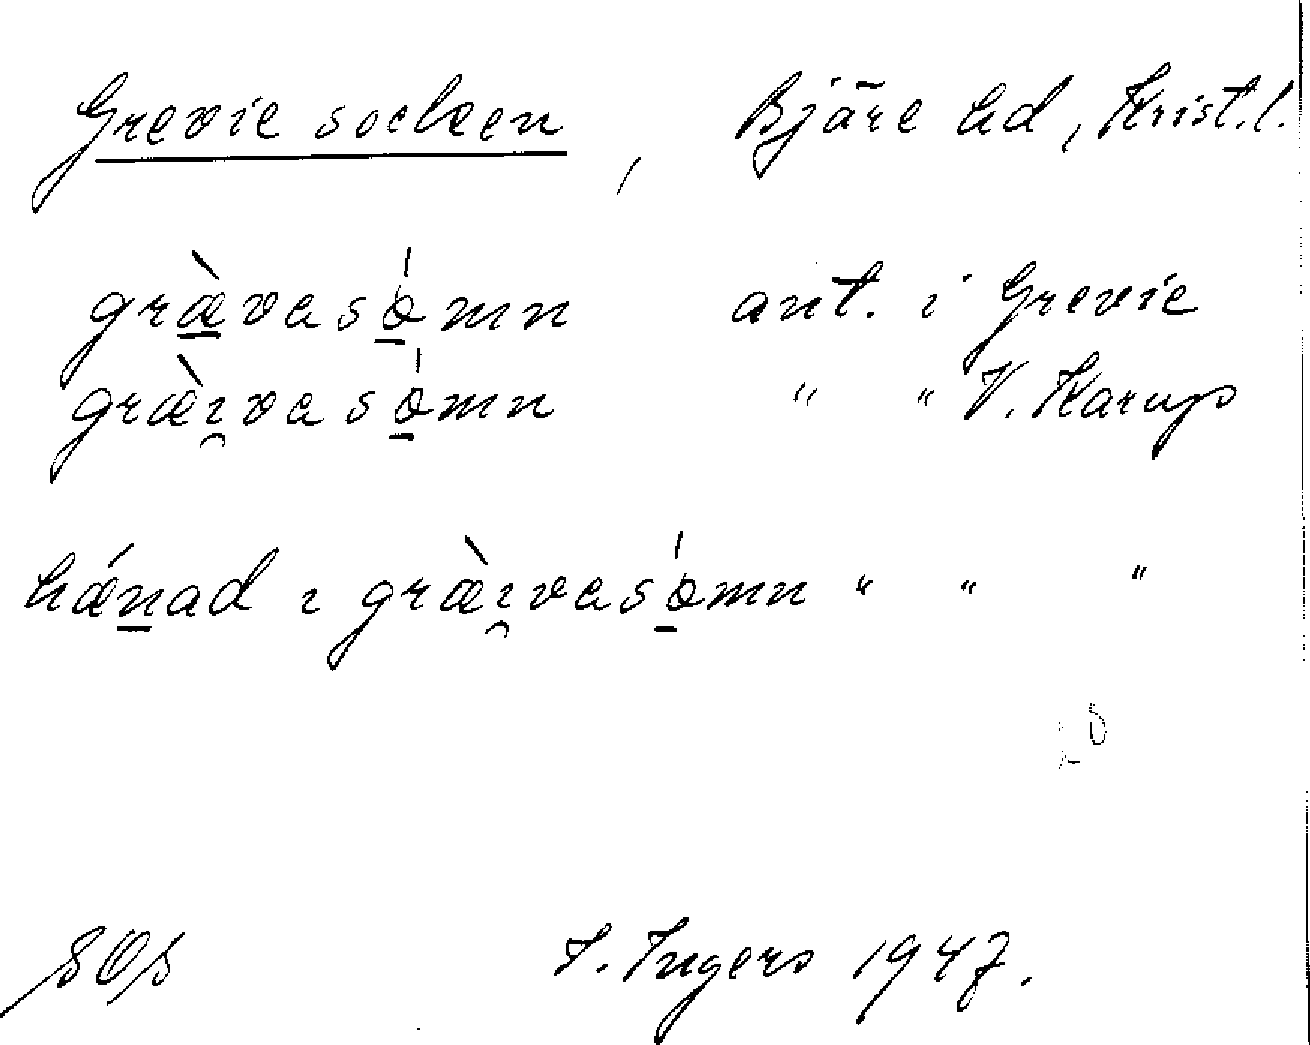 Grevie socken, Bjäre hd, Krist. l.
græ̀vasómn ant. i Grevie
græ̀ɪvasómn " " V. Karup
hǽnad ɪ græ̀ɪvasómn " " "
SOS I. Ingers 1947.